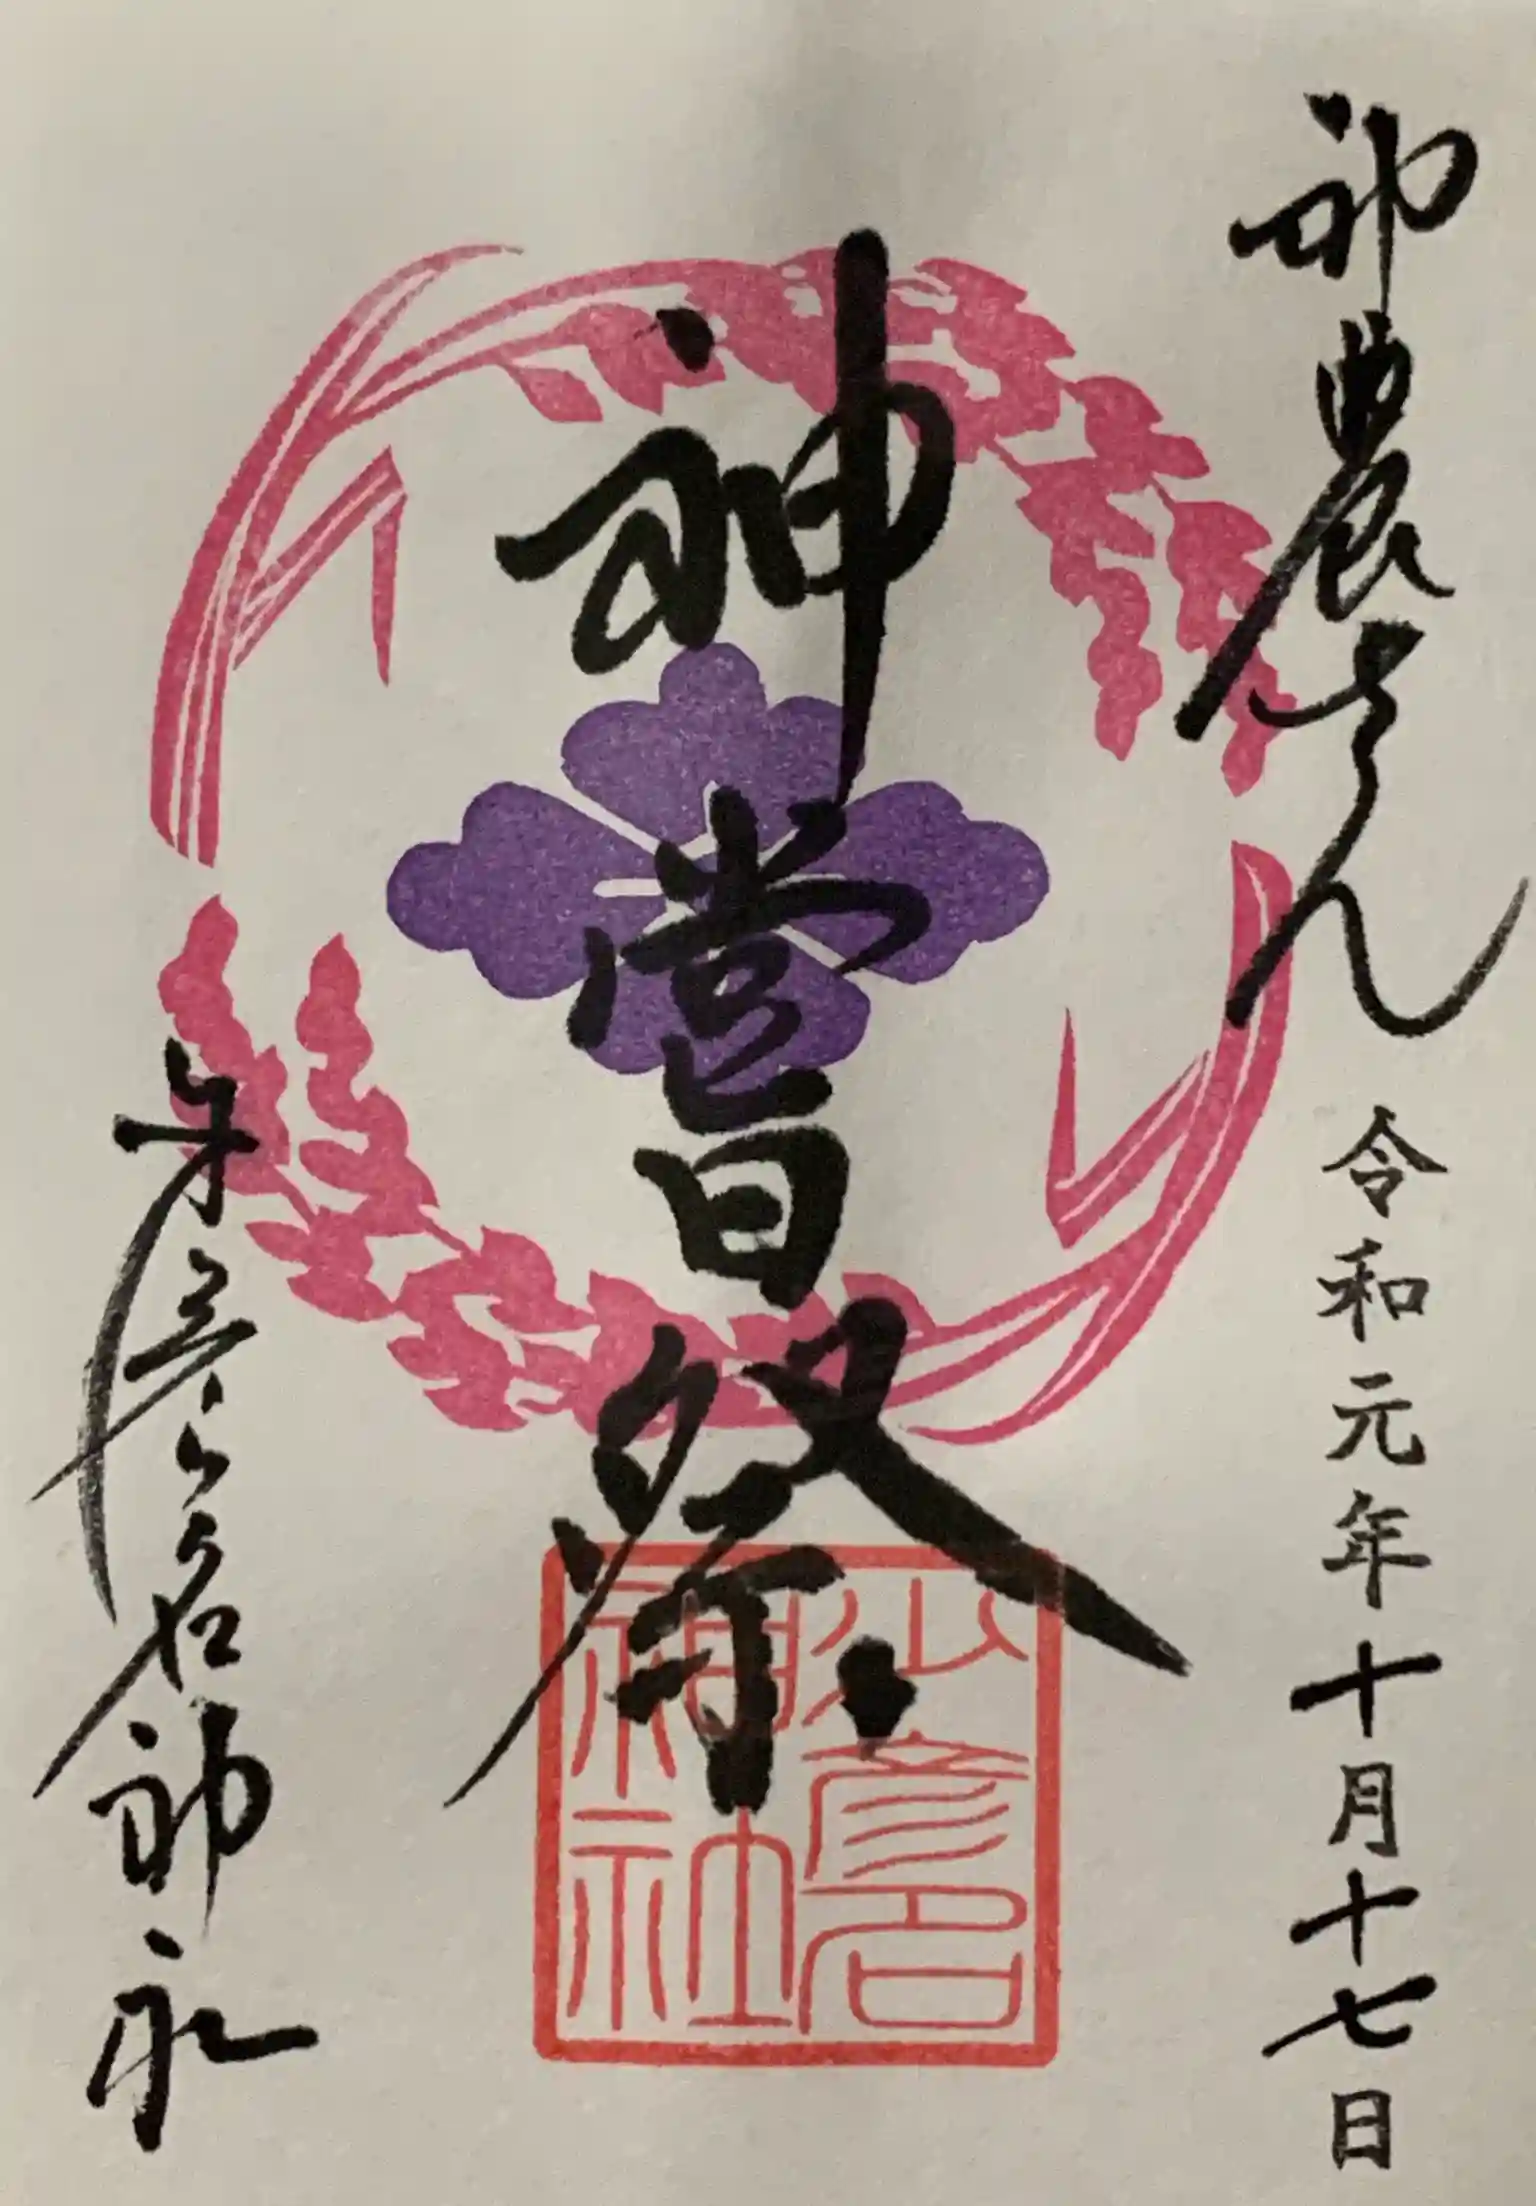 神農さん 令和元年十月十七日
神嘗祭
少彦名神社
少彦名神社